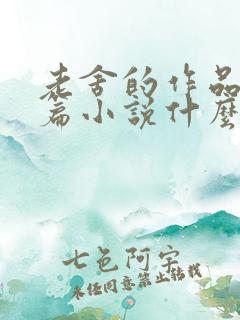 老舍的作品
篇小说什麽
七色阿宝
未经同意禁止转载